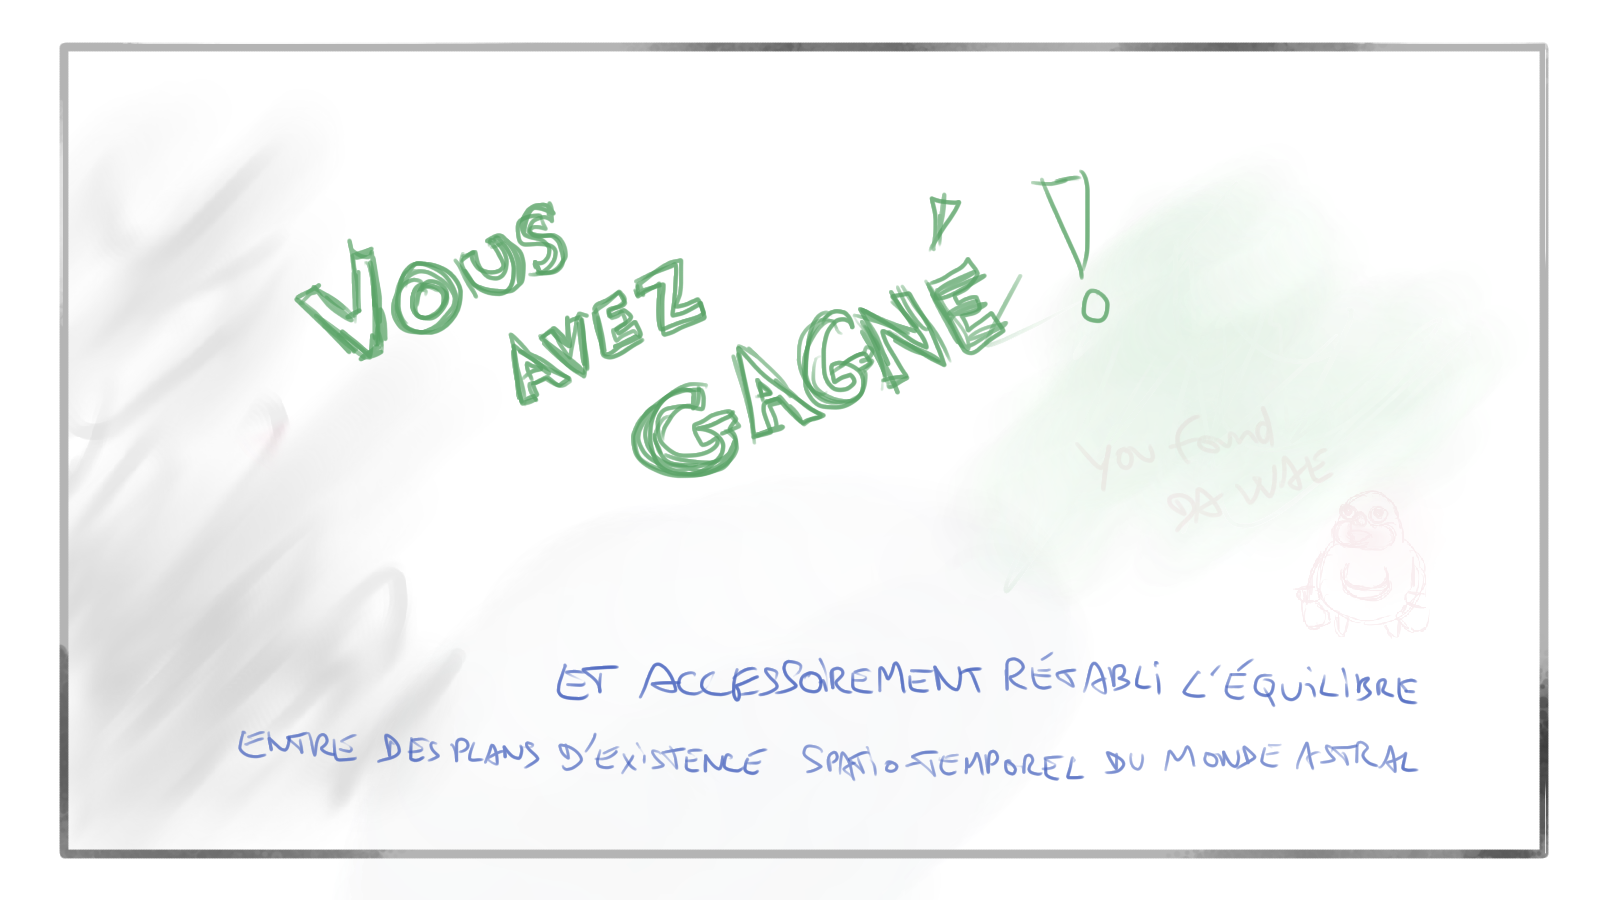 VOUS
AVEZ
GAGNÉ !
You found
DA WAE
ET ACCESSOiREMENT RÉTABLi L'ÉQUiLiBRE
ENTRE DES PLANS D'EXiSTENCE SPATiO-TEMPOREL DU MONDE ASTRAL